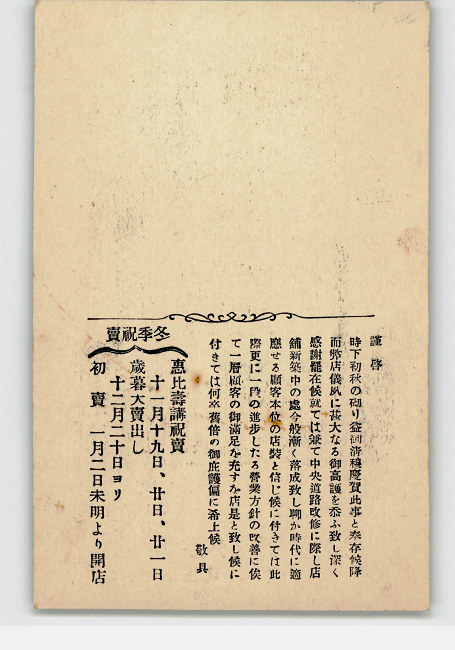 謹啓
時下初秋の砌り益御清穆慶賀此事と奉存候降
而弊店儀夙に甚大なる御高護を忝ふ致し深く
感謝罷在候就ては兼て中央道路改修に際し店
舗新築中の處今般漸く落成致し聊か時代に適
應せる顧客本位の店裝と信じ候に付きては此
際更に一段の進步したる營業方針の改善に俟
て一層顧客の御滿足を充すを店是と致し候に
付きては何卒舊倍の御庇護偏に希上候
敬具
冬季祝賣
惠比壽講祝賣
十一月十九日、廿日、廿一日
歲暮大賣出し
十二月二十日ヨリ
初賣 一月二日未明より開店